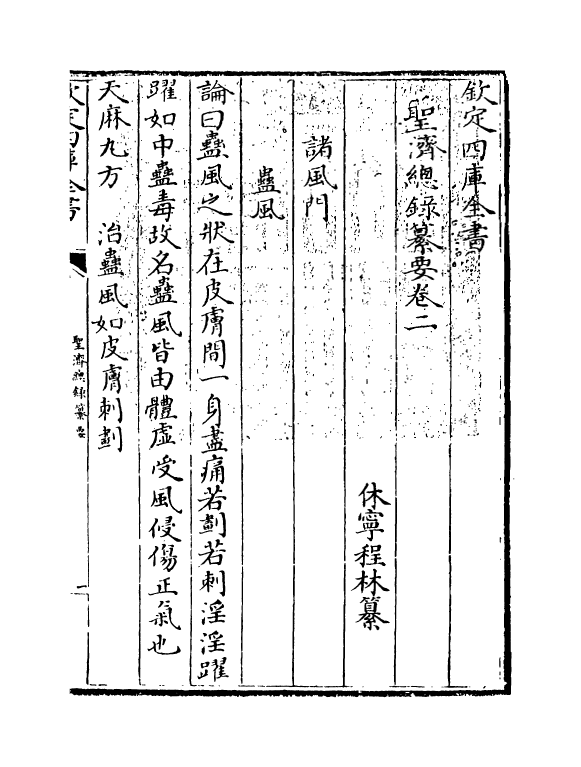 欽定四庫全書
聖濟總錄纂要卷二
休寧程林纂
諸風門
蠱風
論曰蠱風之狀在皮膚間一身盡痛若劃若刺淫淫躍
躍如中蠱毒故名蠱風皆由體虛受風侵傷正氣也
天麻九方　治蠱風如皮膚刺劃
聖濟總錄纂要
一